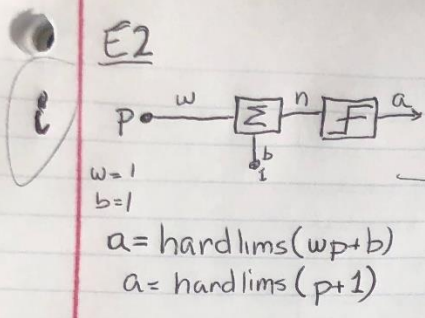 E2
i
P w Σ n a
b
1
w=1
b=1
a= hardlims(wp+b)
a= hardlims(p+1)